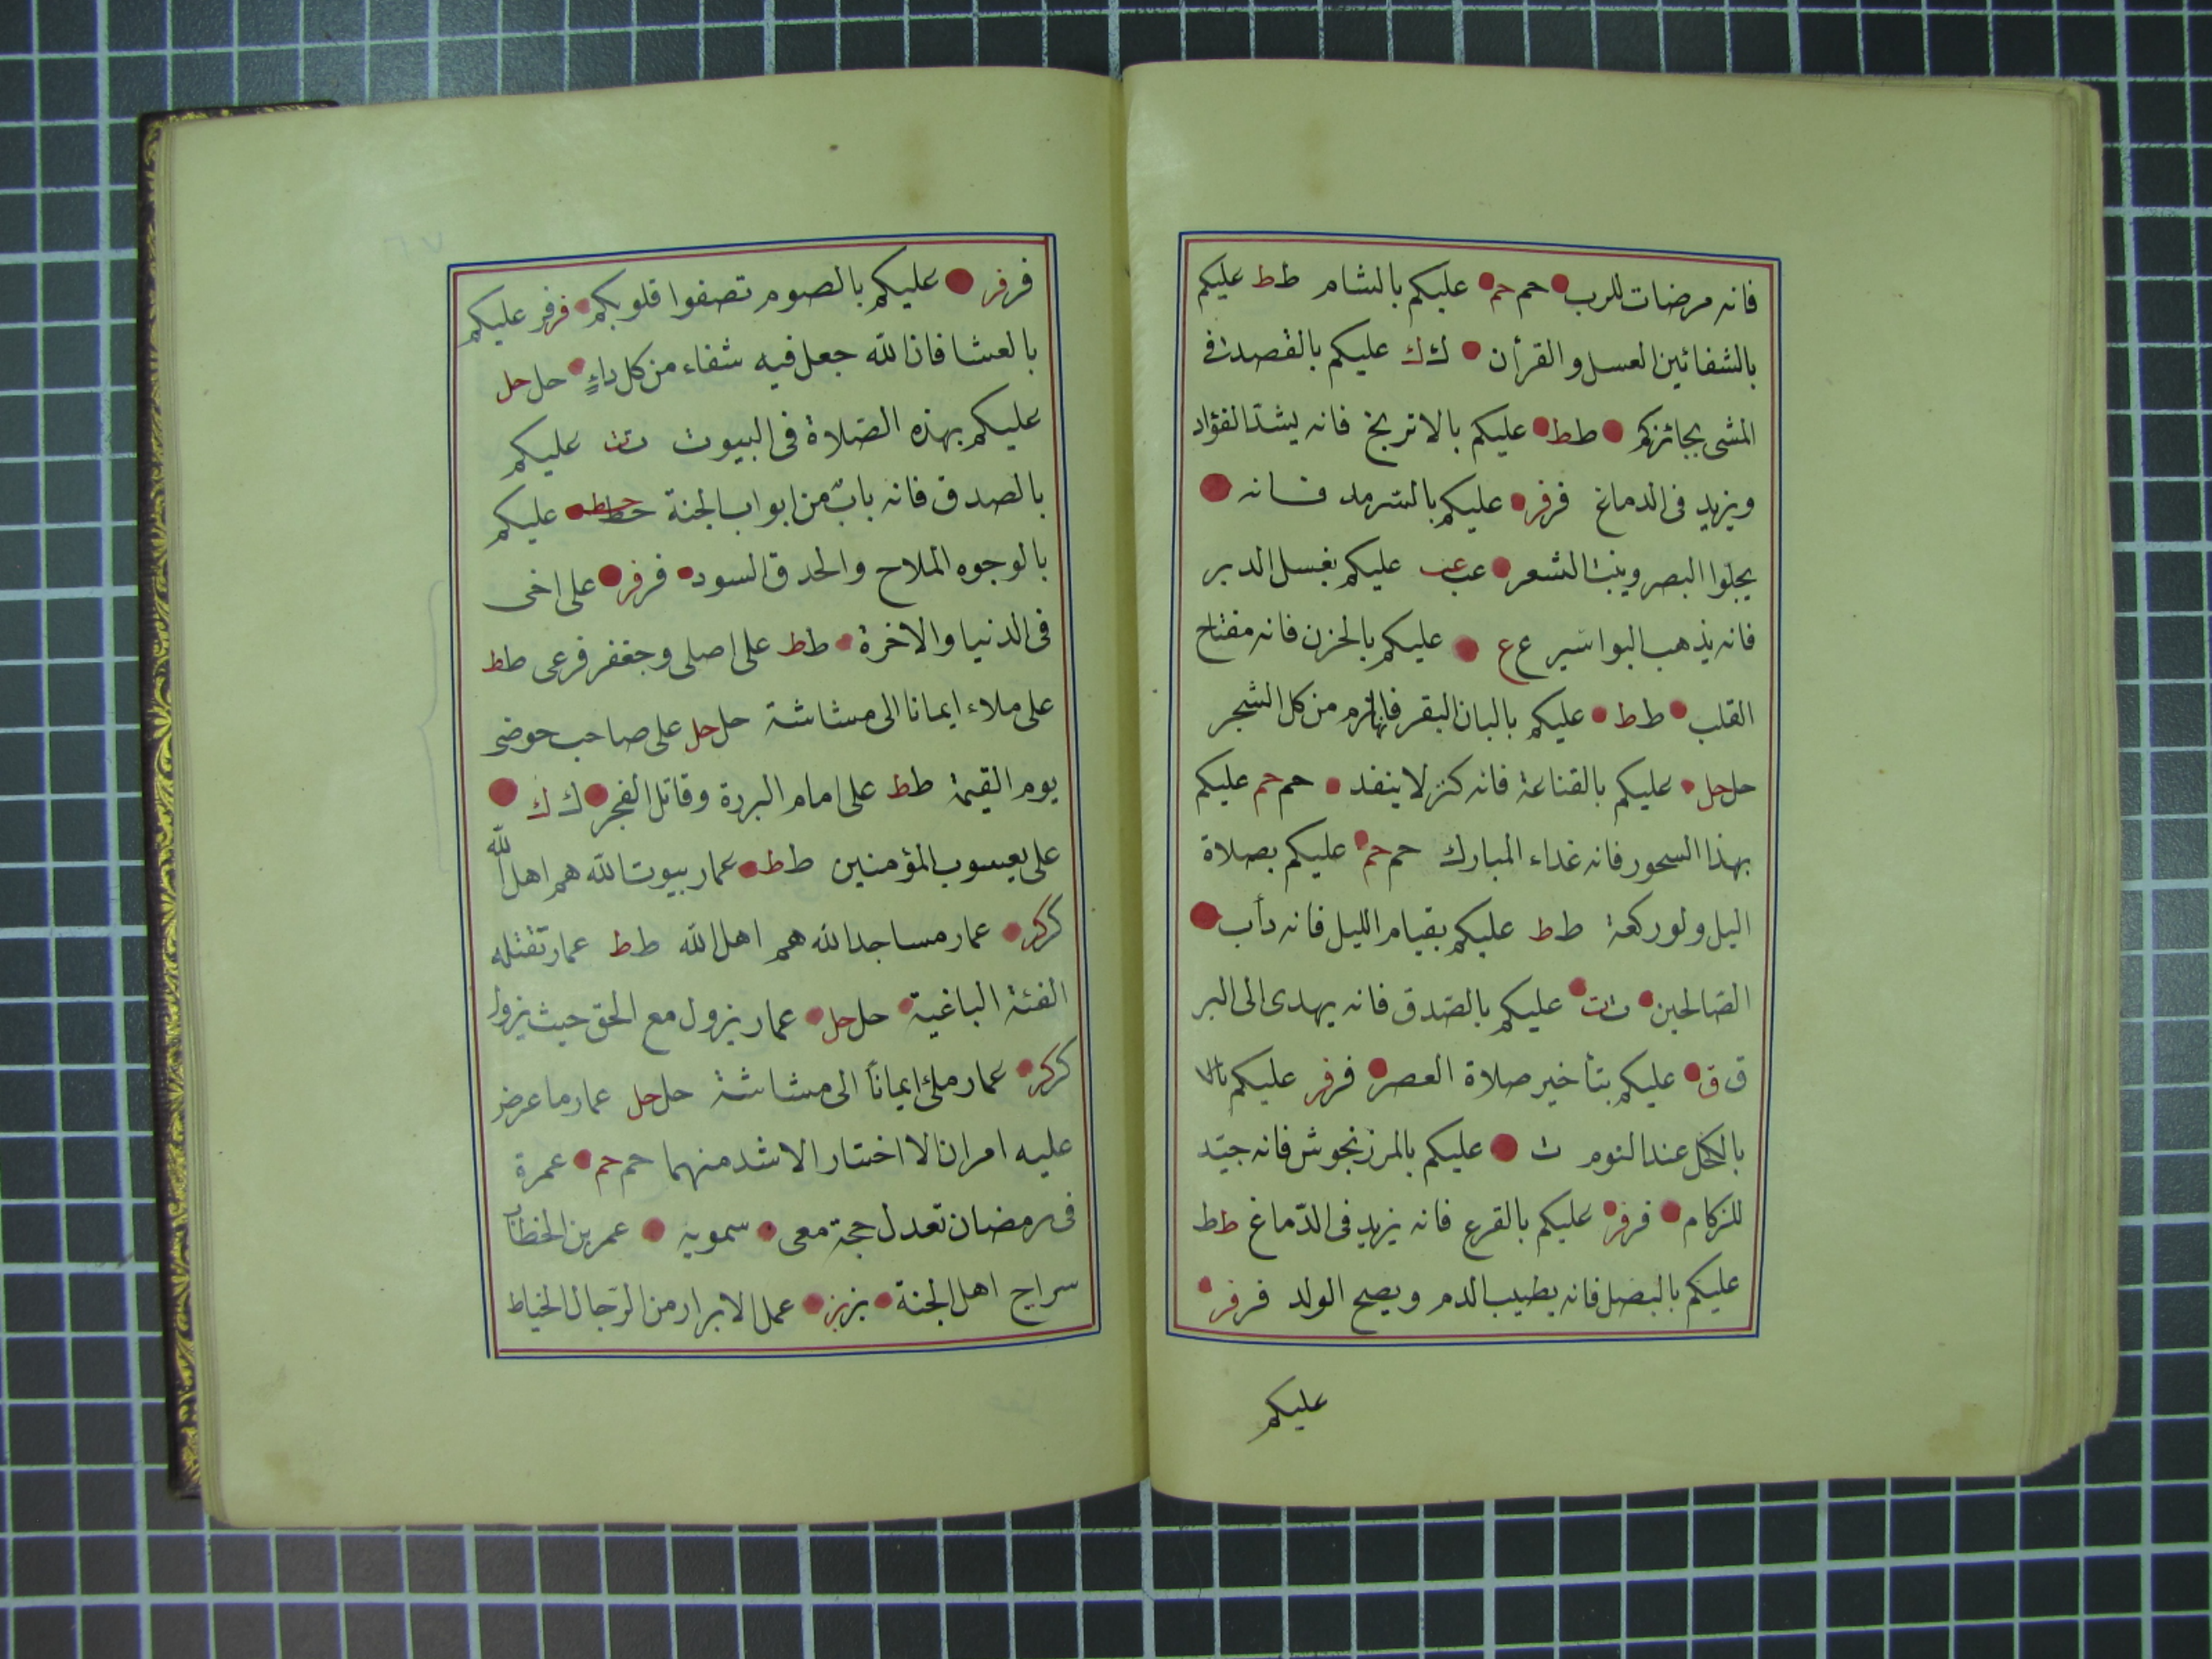 فانه مرضات للرب حم حم عليكم بالشام ط ط عليكم
بالشفائين العسل والقرأن ك ك عليكم بالقصد فى
المشى بجائزكم ط ط عليكم بالاتريخ فانه يشد الفؤاد
ويزيد فى الدماغ فر فر عليكم بالسرمد فانه
يجلوا البصر وينبت الشعر عب عب عليكم بغسل الدبر
فانه يذهب البواسير ع ع عليكم بالحزن فانه مفتاح
القلب ط ط عليكم بالبان البقر فانها ترم من كل الشجر
حل حل عليكم بالقناعة فانه كنز لا ينفد حم حم عليكم
بهذا السحور فانه غداء المبارك حم حم عليكم بصلاة
اليل ولو ركعة ط ط عليكم بقيام الليل فانه دأب
الصالحين ت ت عليكم بالصدق فانه يهدى الى البر
ق ق عليكم بتأخير صلاة العصر فر فر عليكم
بالكحل عند النوم ث عليكم بالمرزنجوش فانه جيّد
للزكام فر فر عليكم بالقرع فانه يزيد فى الدّماغ ط ط
عليكم بالبصل فانه يطيب الدم ويصح الولد فر فر
عليكم
فر فر عليكم بالصوم تصفوا قلوبكم فر فر عليكم
بالعشا فان الله جعل فيه شفاء من كل داءٍ حل حل
عليكم بهذه الصّلاة فى البيوت ت ت عليكم
بالصدق فانه بابٌ من ابواب الجنة خط خط عليكم
بالوجوه الملاح والحدق السود فر فر على اخى
فى الدنيا والاخرة ط ط على اصلى وجعفر فرعى ط ط
على ملاء ايمانا الى مشاشة حل حل على صاحب حوضى
يوم القيمة ط ط على امام البررة وقاتل الفجر ك ك
على يعسوب المؤمنين ط ط عمار بيوت الله هم اهل الله
كر كر عمار مساجد الله هم اهل الله ط ط عمار تقتله
الفئة الباغية حل حل عمار يزول مع الحق حيث يزول
كر كر عمار ملئ ايماناً الى مشاشة حل حل عمار ما عرض
عليه امران الا اختار الاشد منهما حم حم عمرة
فى رمضان تعدل حجة معى سمويه عمر بن الخطاب
سراج اهل الجنة بز بز عمل الابرار من الرّجال الخياط